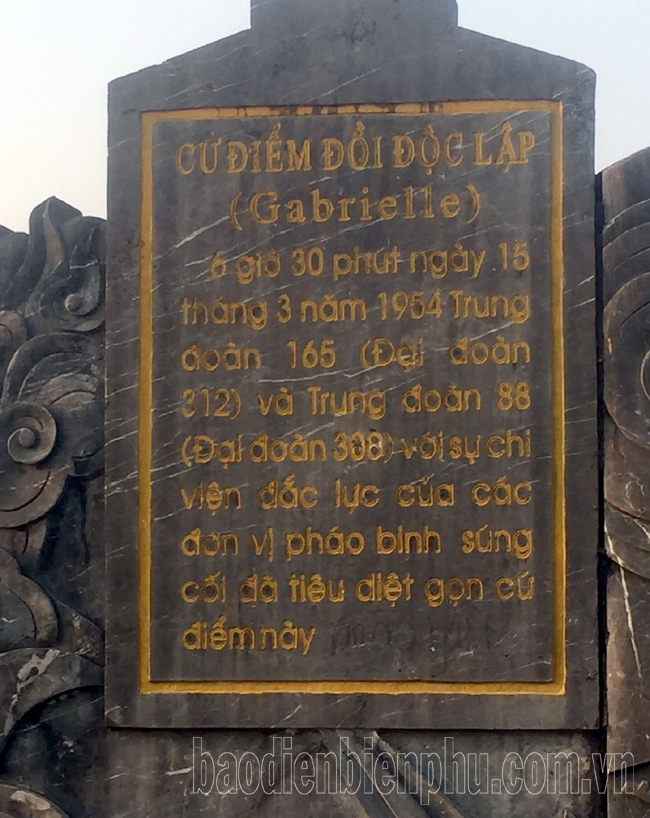 CỨ ĐIỂM ĐỒI ĐỘC LẬP
(Gabrielle)
6 giờ 30 phút ngày 15
tháng 3 năm 1954 Trung
đoàn 165 (Đại đoàn
312) và Trung đoàn 88
(Đại đoàn 308) với sự chi
viện đắc lực của các
đơn vị pháo binh súng
cối đã tiêu diệt gọn cứ
điểm này
baodienbienphu.com.vn